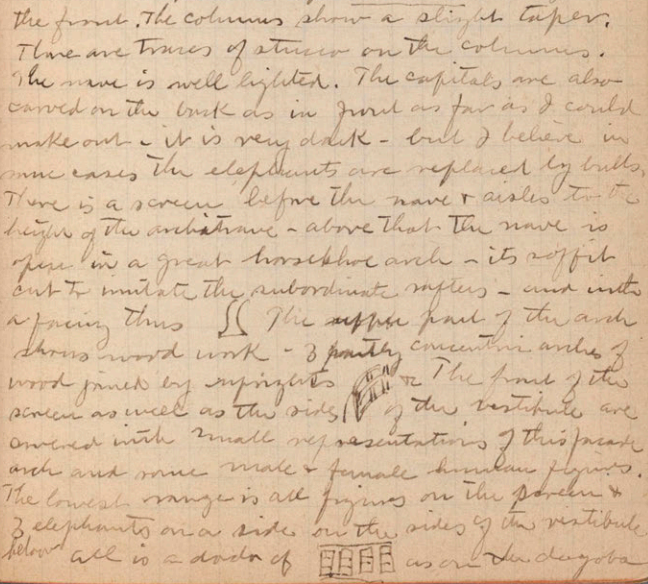 the front. The columns show a slight taper.
There are traces of stucco on the columns.
The nave is well lighted. The capitals are also
carved on the back as in front as far as I could
make out - it is very dark - but I believe in
some cases the elephants are replaced by bulls.
There is a screen before the nave & aisles to the
height of the architrave - above that the nave is
open in a great horseshoe arch - its soffit
cut to imitate the subordinate rafters - and with
a facing thus The upper part of the arch
shows wood work - 3 partly concentric arches of
wood joined by uprights & The front of the
screen as well as the sides of the vestibule are
covered with small representations of this facade
arch and some male & female human figures.
The lowest range is all figures on the screen &
3 elephants on a side on the sides of the vestibule
below all is a dado of as on the dagoba